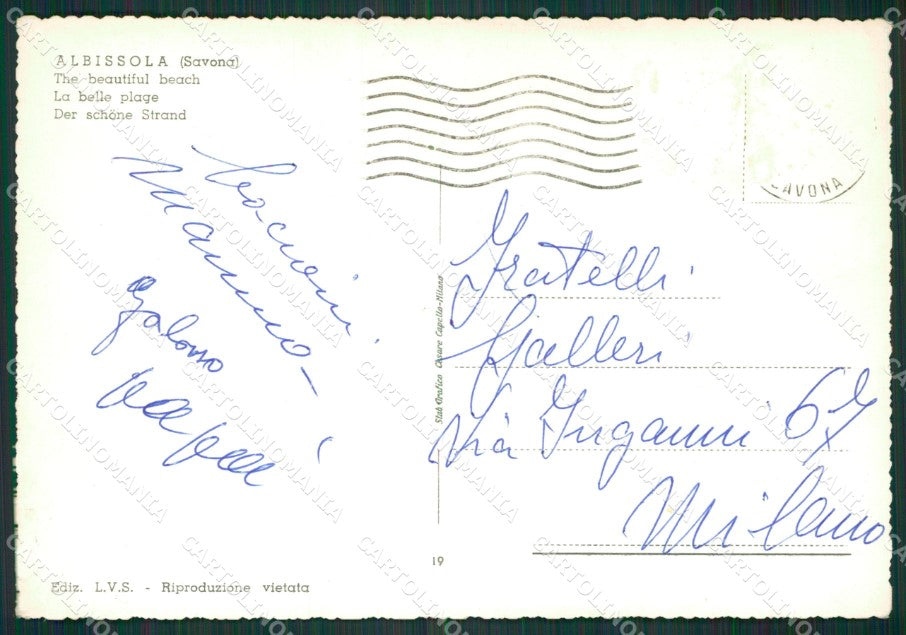 ALBISSOLA (Savona)
The beautiful beach
La belle plage
Der schöne Strand
SAVONA
Bacioni
Mamma
Fratelli
Galleri
Via Inganni 67
Milano
Stab Grafico Cesare Capello-Milano
19
Ediz. L.V.S. - Riproduzione vietata
CARTOLINOMANIA